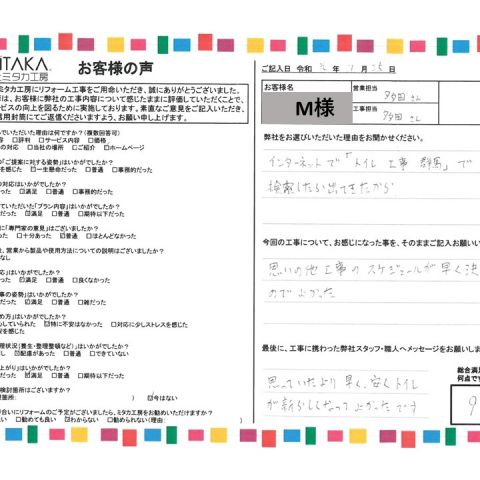 ITAKA
ミタカ工房
お客様の声
ミタカ工房にリフォーム工事をご用命いただき、誠にありがとうございました。
は、お客様に弊社の工事内容について感じたままに評価していただくことで、
ビスの向上を図るために実施しております。素直なご意見をご記入いただき、
信用封筒にてご返信くださいますよう、お願い申し上げます。
いただいた理由は何ですか?(複数回答可)
容 □評判 □サービス内容 □価格
の対応 □当社の場所 □ご紹介 □ホームページ
の「ご提案に対する姿勢」はいかがでしたか?
を感じた □一生懸命だった □普通 □事務的だった
の対応はいかがでしたか?
った ☑満足 □普通 □事務的だった
ていただいた「プラン内容」はいかがでしたか?
った ☑満足 □普通 □期待以下だった
に「専門家の意見」はございましたか?
った □十分あった ☑普通 □ほとんどなかった
、営業から製品や使用方法についての説明はございましたか?
なし
応」はいかがでしたか?
った ☑満足 □普通 □良くなかった
事の姿勢」はいかがでしたか?
った ☑満足 □普通 □雑だった
め方」はいかがでしたか?
していられた ☑特に不安はなかった □対応に少しストレスを感じた
を感じた
理状況(養生・整理整頓など)」はいかがでしたか?
し ☑配慮があった □普通 □できていない
上がり」はいかがでしたか?
った ☑満足 □普通 □期待以下だった
検討箇所はございますか?
箇所: ) ☑今はない
合いにリフォームのご予定がございましたら、ミタカ工房をお勧めいただけますか?
ない □勧めても良い ☑わからない □勧められない(理由: )
ご記入日 令和 元年
お客様名
M様
営業担当
多田 さん
工事担当
多田 さん
弊社をお選びいただいた理由をお聞かせください。
インターネットで「トイレ 工事 群馬」で
検索したら出てきたから
今回の工事について、お感じになった事を、そのままご記入お願い
思いの他工事のスケジュールが早く決
のでよかった
最後に、工事に携わった弊社スタッフ・職人へメッセージをお願いしま
思っていたより早く、安くトイレ
が新らしくなってよかったです
総合満足
何点です
9